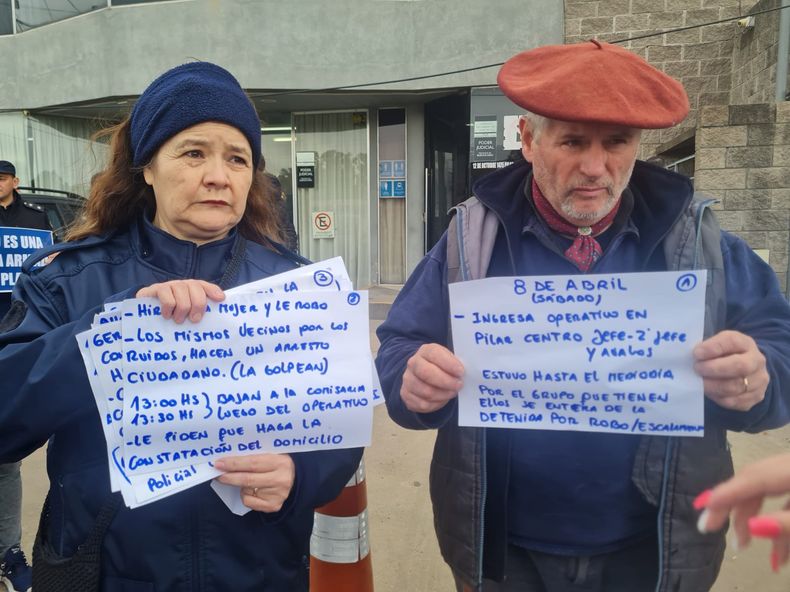 3
LA
HIR
MUJER Y LE ROBÓ
2
- LOS MISMOS VECINOS POR LOS
RUIDOS, HACEN UN ARRESTO
CIUDADANO. (LA GOLPEAN)
13:00 HS
13:30 HS
BAJAN A LA COMISARIA
LUEGO DEL OPERATIVO
- LE PIDEN QUE HAGA LA
CONSTATACIÓN DEL DOMICILIO
POLICIAL
8 DE ABRIL
(SÁBADO)
1
- INGRESA OPERATIVO EN
PILAR CENTRO JEFE-2°JEFE
Y AVALOS
ESTUVO HASTA EL MEDIODIA
POR EL GRUPO QUE TIENEN
ELLOS SE ENTERA DE LA
DETENIDA POR ROBO/ESCALAM
PODER
JUDICIAL
E
O ES UNA